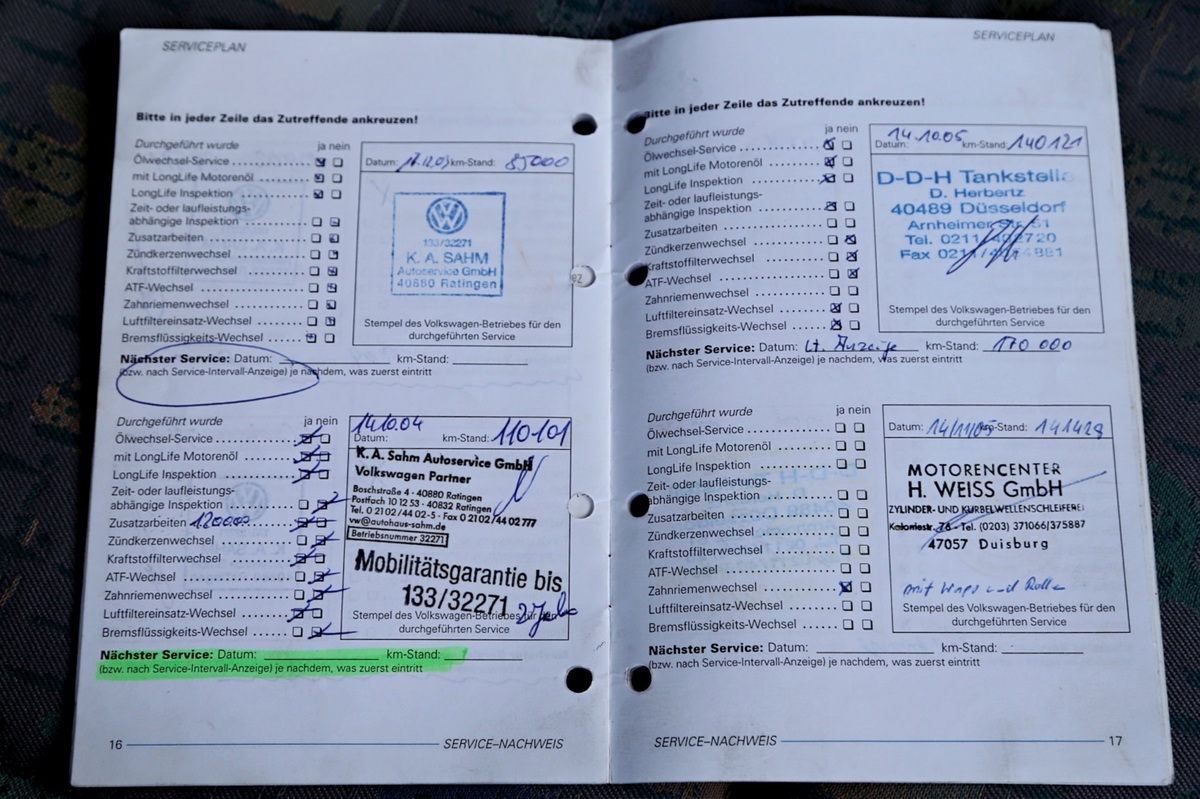 SERVICEPLAN
Bitte in jeder Zeile das Zutreffende ankreuzen!
Durchgeführt wurde ja nein
Ölwechsel-Service
mit LongLife Motorenöl
LongLife Inspektion
Zeit- oder laufleistungs-
abhängige Inspektion
Zusatzarbeiten
Zündkerzenwechsel
Kraftstoffilterwechsel
ATF-Wechsel
Zahnriemenwechsel
Luftfiltereinsatz-Wechsel
Bremsflüssigkeits-Wechsel
Datum: km-Stand: 85000
133/32271
K. A. SAHM
Autoservice GmbH
40880 Ratingen
Stempel des Volkswagen-Betriebes für den
durchgeführten Service
Nächster Service: Datum: km-Stand:
(bzw. nach Service-Intervall-Anzeige) je nachdem, was zuerst eintritt
Durchgeführt wurde ja nein
Ölwechsel-Service
mit LongLife Motorenöl
LongLife Inspektion
Zeit- oder laufleistungs-
abhängige Inspektion
Zusatzarbeiten 120000
Zündkerzenwechsel
Kraftstoffilterwechsel
ATF-Wechsel
Zahnriemenwechsel
Luftfiltereinsatz-Wechsel
Bremsflüssigkeits-Wechsel
14.10.04 110101
Datum: km-Stand:
K. A. Sahm Autoservice GmbH
Volkswagen Partner
Boschstraße 4 - 40880 Ratingen
Postfach 10 12 53 - 40832 Ratingen
Tel. 0 21 02/44 02-5 - Fax 0 21 02/44 02 777
vw@autohaus-sahm.de
Betriebsnummer 32271
Mobilitätsgarantie bis
133/32271
Stempel des Volkswagen-Betriebes für den
durchgeführten Service
Nächster Service: Datum: km-Stand:
(bzw. nach Service-Intervall-Anzeige) je nachdem, was zuerst eintritt
16 SERVICE–NACHWEIS
SERVICEPLAN
Bitte in jeder Zeile das Zutreffende ankreuzen!
Durchgeführt wurde ja nein
Ölwechsel-Service
mit LongLife Motorenöl
LongLife Inspektion
Zeit- oder laufleistungs-
abhängige Inspektion
Zusatzarbeiten
Zündkerzenwechsel
Kraftstoffilterwechsel
ATF-Wechsel
Zahnriemenwechsel
Luftfiltereinsatz-Wechsel
Bremsflüssigkeits-Wechsel
Datum: 14.10.05 km-Stand: 140121
D-D-H Tankstelle
D. Herbertz
40489 Düsseldorf
Arnheimer Str.
Tel. 0211
Fax 0211
Stempel des Volkswagen-Betriebes für den
durchgeführten Service
Nächster Service: Datum: lt. Anzeige km-Stand: 170 000
(bzw. nach Service-Intervall-Anzeige) je nachdem, was zuerst eintritt
Durchgeführt wurde ja nein
Ölwechsel-Service
mit LongLife Motorenöl
LongLife Inspektion
Zeit- oder laufleistungs-
abhängige Inspektion
Zusatzarbeiten
Zündkerzenwechsel
Kraftstoffilterwechsel
ATF-Wechsel
Zahnriemenwechsel
Luftfiltereinsatz-Wechsel
Bremsflüssigkeits-Wechsel
Datum: 14/11/05 km-Stand: 141428
MOTORENCENTER
H. WEISS GmbH
ZYLINDER- UND KURBELWELLENSCHLEIFEREI
Koloniestr. 76 - Tel. (0203) 371066/375887
47057 Duisburg
mit Wapu und Rolle
Stempel des Volkswagen-Betriebes für den
durchgeführten Service
Nächster Service: Datum: km-Stand:
(bzw. nach Service-Intervall-Anzeige) je nachdem, was zuerst eintritt
SERVICE–NACHWEIS 17